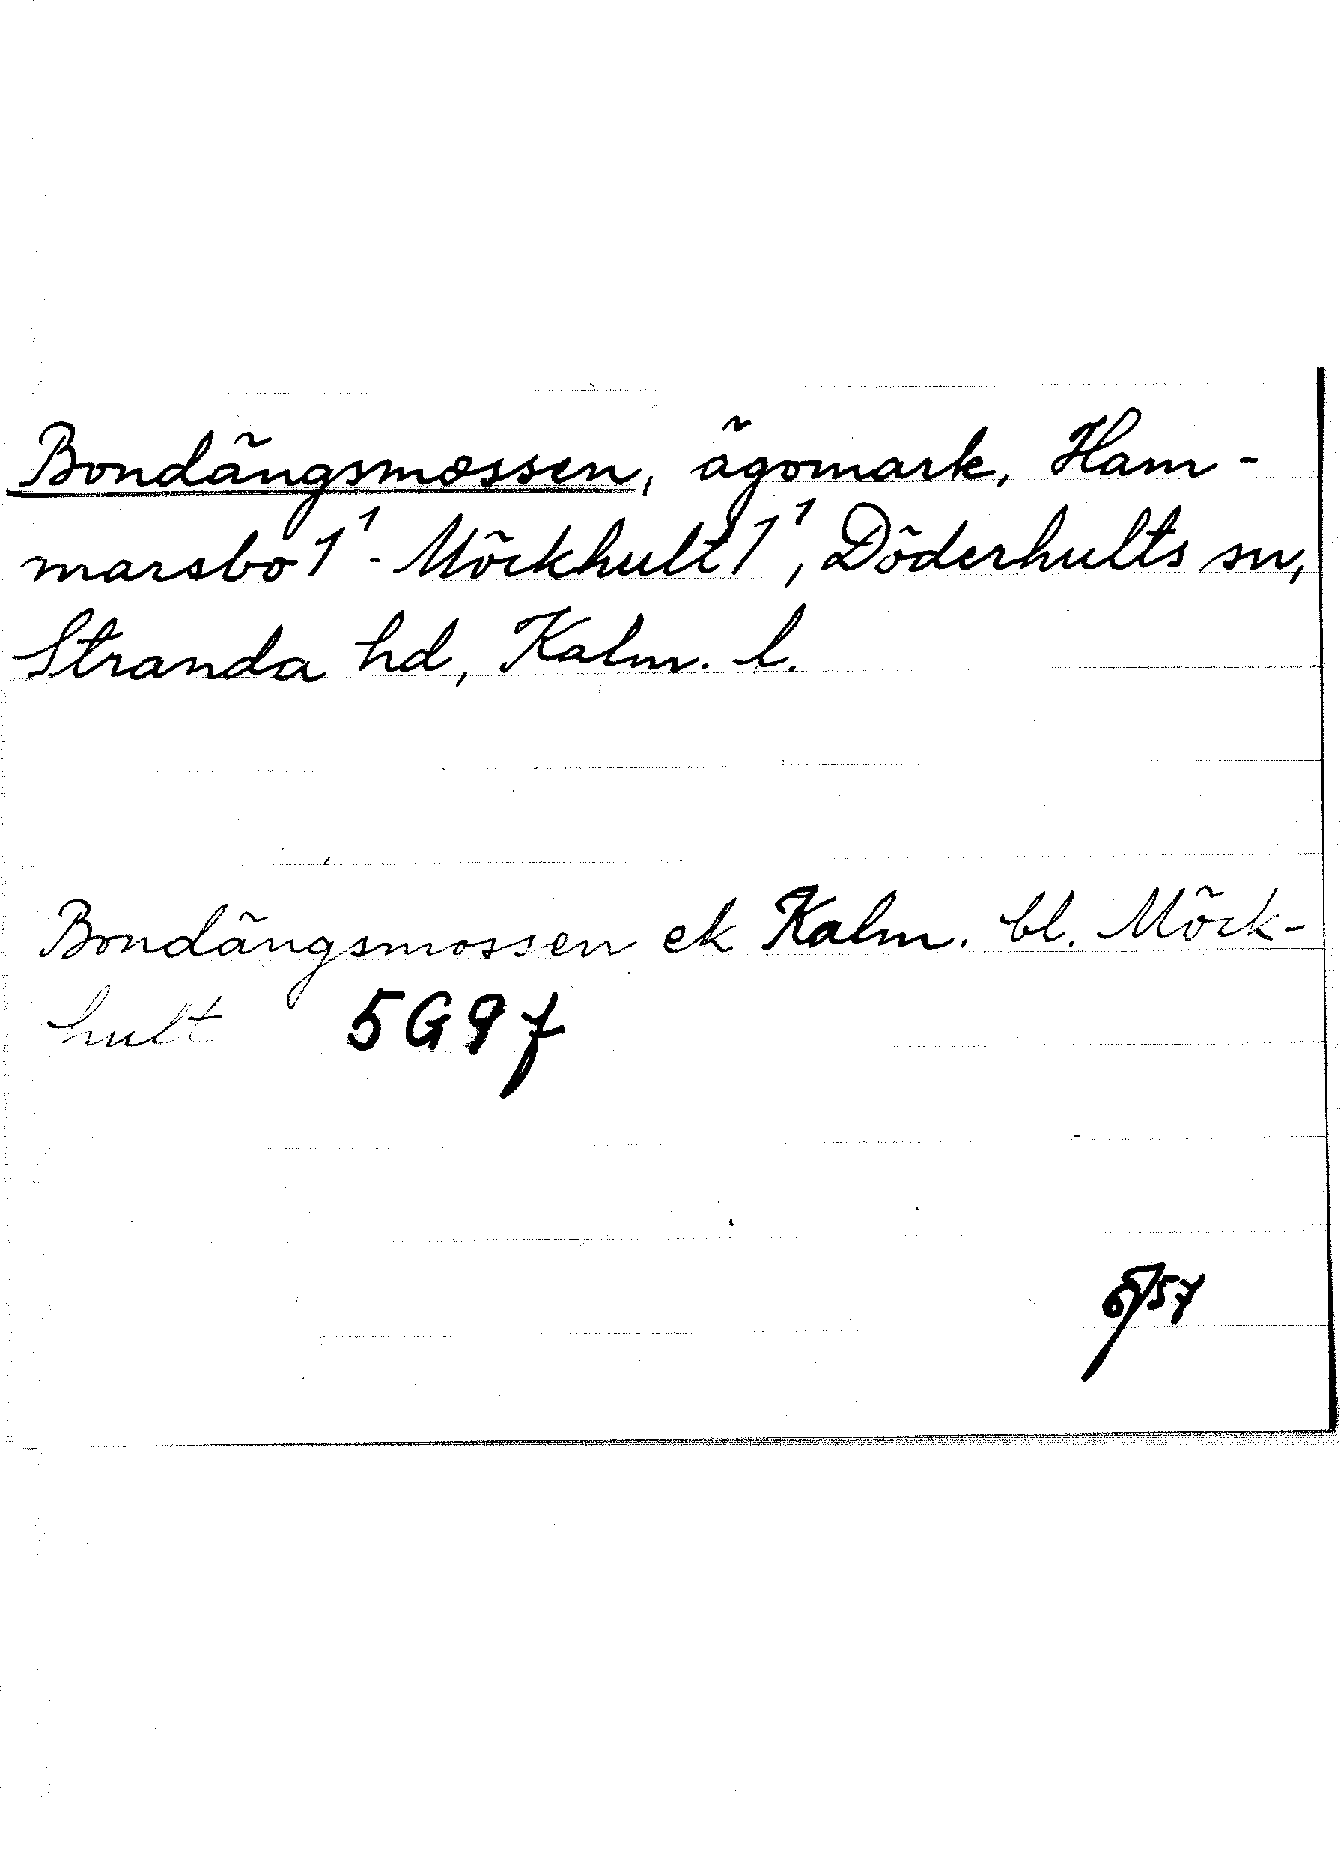 Bondängsmossen, ägomark, Ham-
marsbo 1¹ - Möckhult 1¹, Döderhults sn,
Stranda hd, Kalm. l.
Bondängsmossen ek Kalm. bl. Möck-
hult 5G9f